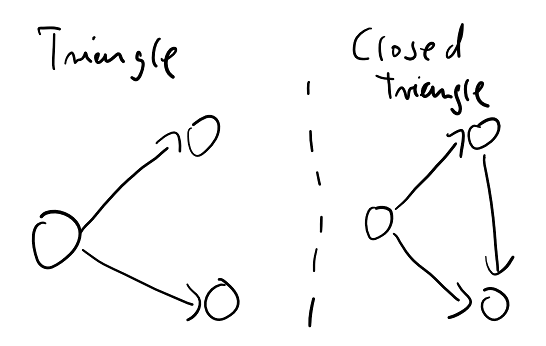 Triangle
Closed
triangle